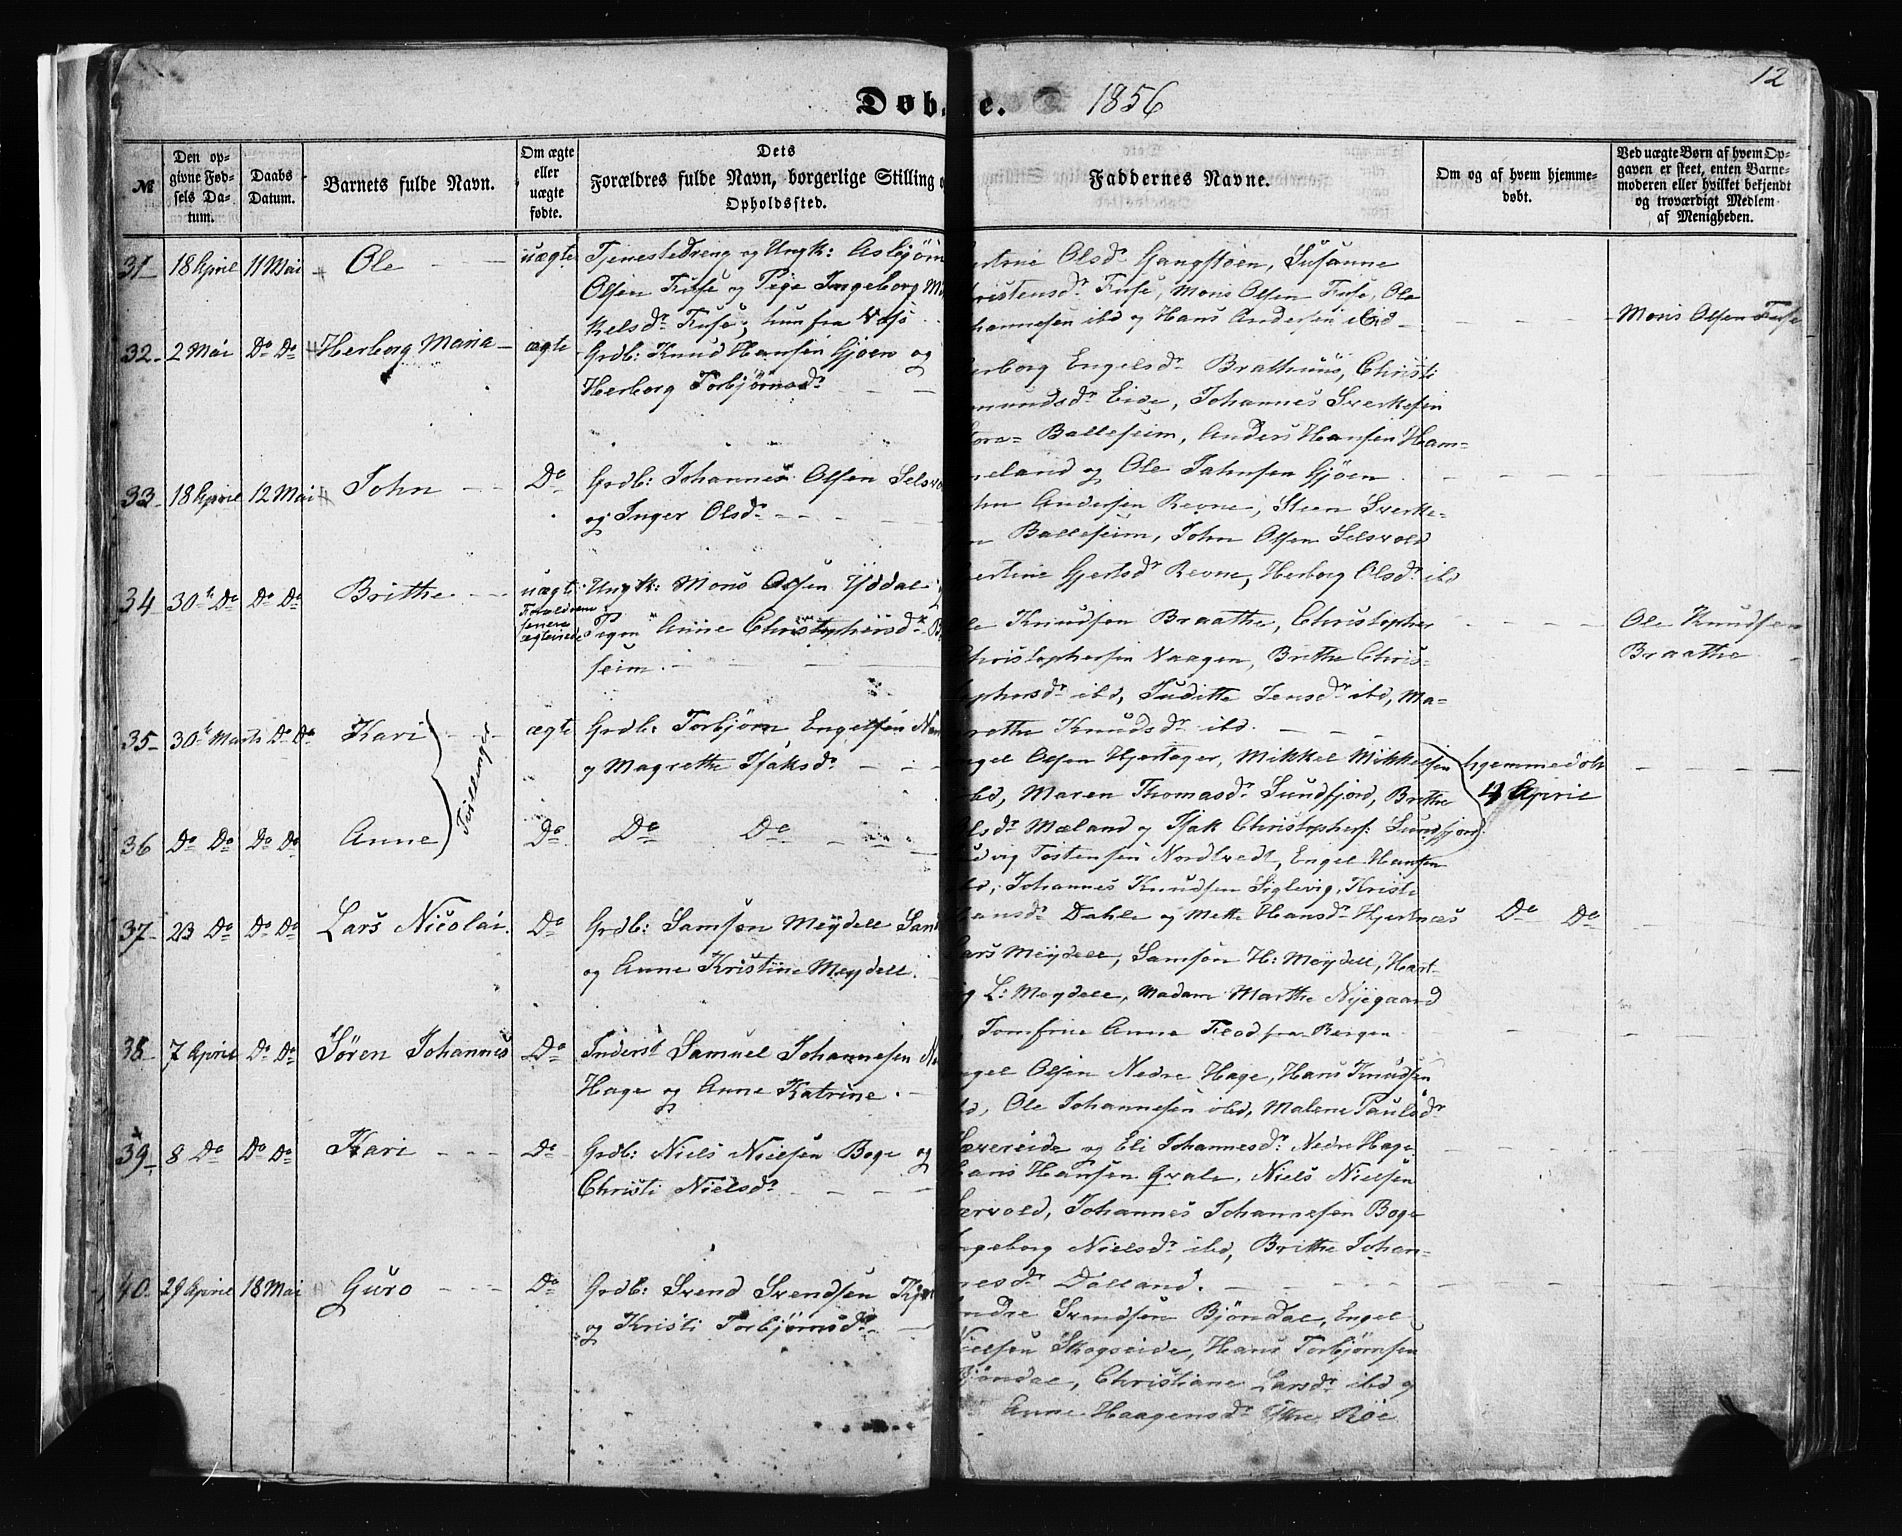 12
Døb e. 1856
№
Den op-
givne Fød-
sels Da-
tum.
Daabs
Datum.
Barnets fulde Navn.
Om ægte
eller
uægte
fødte.
Dets
Forældres fulde Navn, borgerlige Stilling o
Opholdssted.
Faddernes Navne.
Om og af hvem hjemme-
døbt.
Ved uægte Børn af hvem Op-
gaven er skeet, enten Barne-
moderen eller hvilket bekjendt
og troværdigt Medlem
af Menigheden.
31 18 April 11 Mai Ole uægte Tjenestedreng og Ungk: Asbjørn
Olsen Fuse og Pige Ingeborg Mi
kelsdr Fuse, hun fra Vos
Olsdr Gangstøen, Susanne
ristensdr Fuse, Mons Olsen Fuse, Ole
hannesen ibd og Hans Andersen ibid
Mons Olsen Fuse
32 2 Mai Do Do Herborg Maria ægte Grdb: Knud Hansen Gjøen og
Herborg Torbjørnsdr
erborg Engelsdr Brathuus, Christi
mundsdr Eide, Johannes Sverkesen
tore= Balleseim, Anders Hansen Ham=
meland og Ole Jahnsen Gjøen
33 18 April 12 Mai John Do Grdb: Johannes Olsen Selsvo
og Inger Olsdr
ohn Andersen Revne, Steen Sverke=
en Balleseim, John Olsen Selsvold
ertine Gjertsdr Revne, Herborg Olsdr ibd
34 30te Do Do Do Brithe uægte
Forældrene
senere
ægteviede
Ungk: Mons Olsen Yddal
Pigen Anne Christophersdr B
seim.
le Knudsen Braathe, Christopher
hristophersen Vaagen, Brithe Chris=
tophersdr ibd, Juditte Jensdr ibd, Ma=
rethe Knudsdr ibd.
Ole Knudsen
Braathe
35 30te Marts Do Do Kari ægte Grdb: Torbjørn Engelsen N
og Magrethe Isaksdr
Tvillinger
ngel Olsen Hjertager, Mikkel Mikkelsen
ibd, Maren Thomasdr Sundfjord, Brithe
lsdr Mæland og Isak Christophers: Sundfjord.
hjemmedøbt
4 April
36 Do Do Do Do Anne Do Do Do
udvig Tostensen Nordtvedt, Engel Hansen
ibd, Johannes Knudsen Siglevig, Kristi
Hansdr Dahle og Mette Hansdr Hjertnæs
37 23 Do Do Do Lars Nicolai Do Grdb: Samson Meydell Sand
og Anne Kristine Meydell.
Do Do
Lars Meydell, Samson H: Meydell, Hart-
ig L: Meydell, Madam Marthe Nygaard
Jomfrue Anna Flod fra Bergen
38 7 April Do Do Søren Johannes Do Inderst Samuel Johannesen Ne
Hage og Anne Katrine.
ngel Olsen Nedre Hage, Hans Knudsen
ibd, Ole Johannesen ibd, Malene Paulsdr
Sævereide og Eli Johannesdr Nedre Hage
39 8 Do Do Do Kari Do Grdb: Niels Nielsen Boge og
Christi Nielsdr
Hans Hansen Qvale, Niels Nielsen
Særvold, Johannes Johannesen Boge
ngeborg Nielsdr ibd, Brithe Johan=
nesdr Dalland.
40. 29 April 18 Mai Guro Do Grdb: Svend Svendsen
og Kristi Torbjørnsdr
Andre Svendsen Bjöndal, Engel
Nielsen Skogseide, Hans Torbjørnsen
Bjøndal, Christiane Larsdr ibd og
Anne Haagensdr Yttre Røe